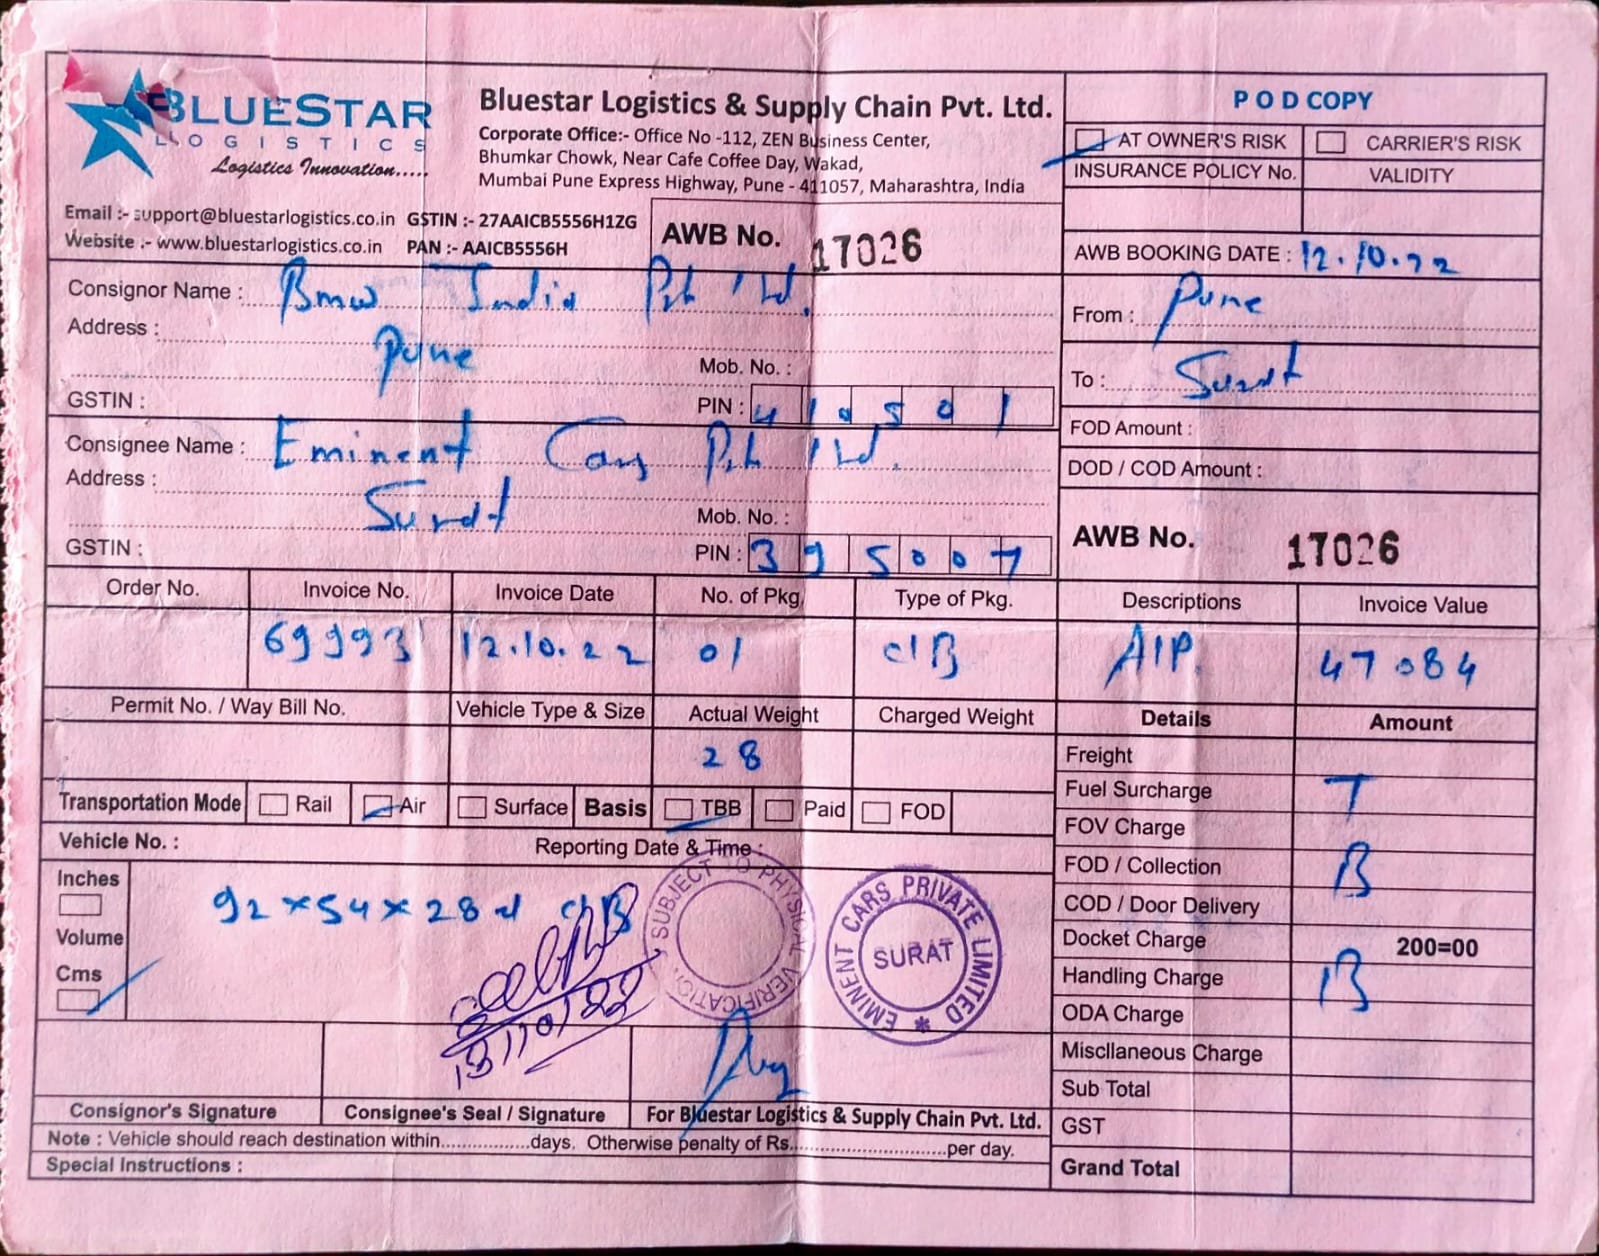 BLUESTAR
LOGISTICS
Logistics Innovation.....
Bluestar Logistics & Supply Chain Pvt. Ltd.
Corporate Office:- Office No -112, ZEN Business Center,
Bhumkar Chowk, Near Cafe Coffee Day, Wakad,
Mumbai Pune Express Highway, Pune - 411057, Maharashtra, India
Email :- support@bluestarlogistics.co.in GSTIN :- 27AAICB5556H1ZG
Website :- www.bluestarlogistics.co.in PAN :- AAICB5556H
AWB No. 17026
POD COPY
AT OWNER'S RISK CARRIER'S RISK
INSURANCE POLICY No. VALIDITY
AWB BOOKING DATE : 12.10.22
Consignor Name : Bmw India Pvt Ltd.
Address : Pune
Mob. No. :
GSTIN : PIN : 410501
From : Pune
To : Surat
FOD Amount :
DOD / COD Amount :
Consignee Name : Eminent Cars Pvt Ltd.
Address : Surat
Mob. No. :
GSTIN : PIN : 395007
AWB No. 17026
Order No. Invoice No. Invoice Date No. of Pkg. Type of Pkg. Descriptions Invoice Value
69993 12.10.22 01 C/B A/P. 47084
Permit No. / Way Bill No. Vehicle Type & Size Actual Weight Charged Weight Details Amount
28
Transportation Mode Rail Air Surface Basis TBB Paid FOD
Vehicle No. : Reporting Date & Time :
Inches
Volume
Cms
92×54×28 C/B
SUBJECT TO PHYSICAL VERIFICATION
EMINENT CARS PRIVATE LIMITED
SURAT
13/10/22
Freight
Fuel Surcharge T
FOV Charge
FOD / Collection B
COD / Door Delivery
Docket Charge 200=00
Handling Charge B
ODA Charge
Miscllaneous Charge
Sub Total
GST
Grand Total
Consignor's Signature Consignee's Seal / Signature For Bluestar Logistics & Supply Chain Pvt. Ltd.
Note : Vehicle should reach destination within.................days. Otherwise penalty of Rs..............................per day.
Special Instructions :